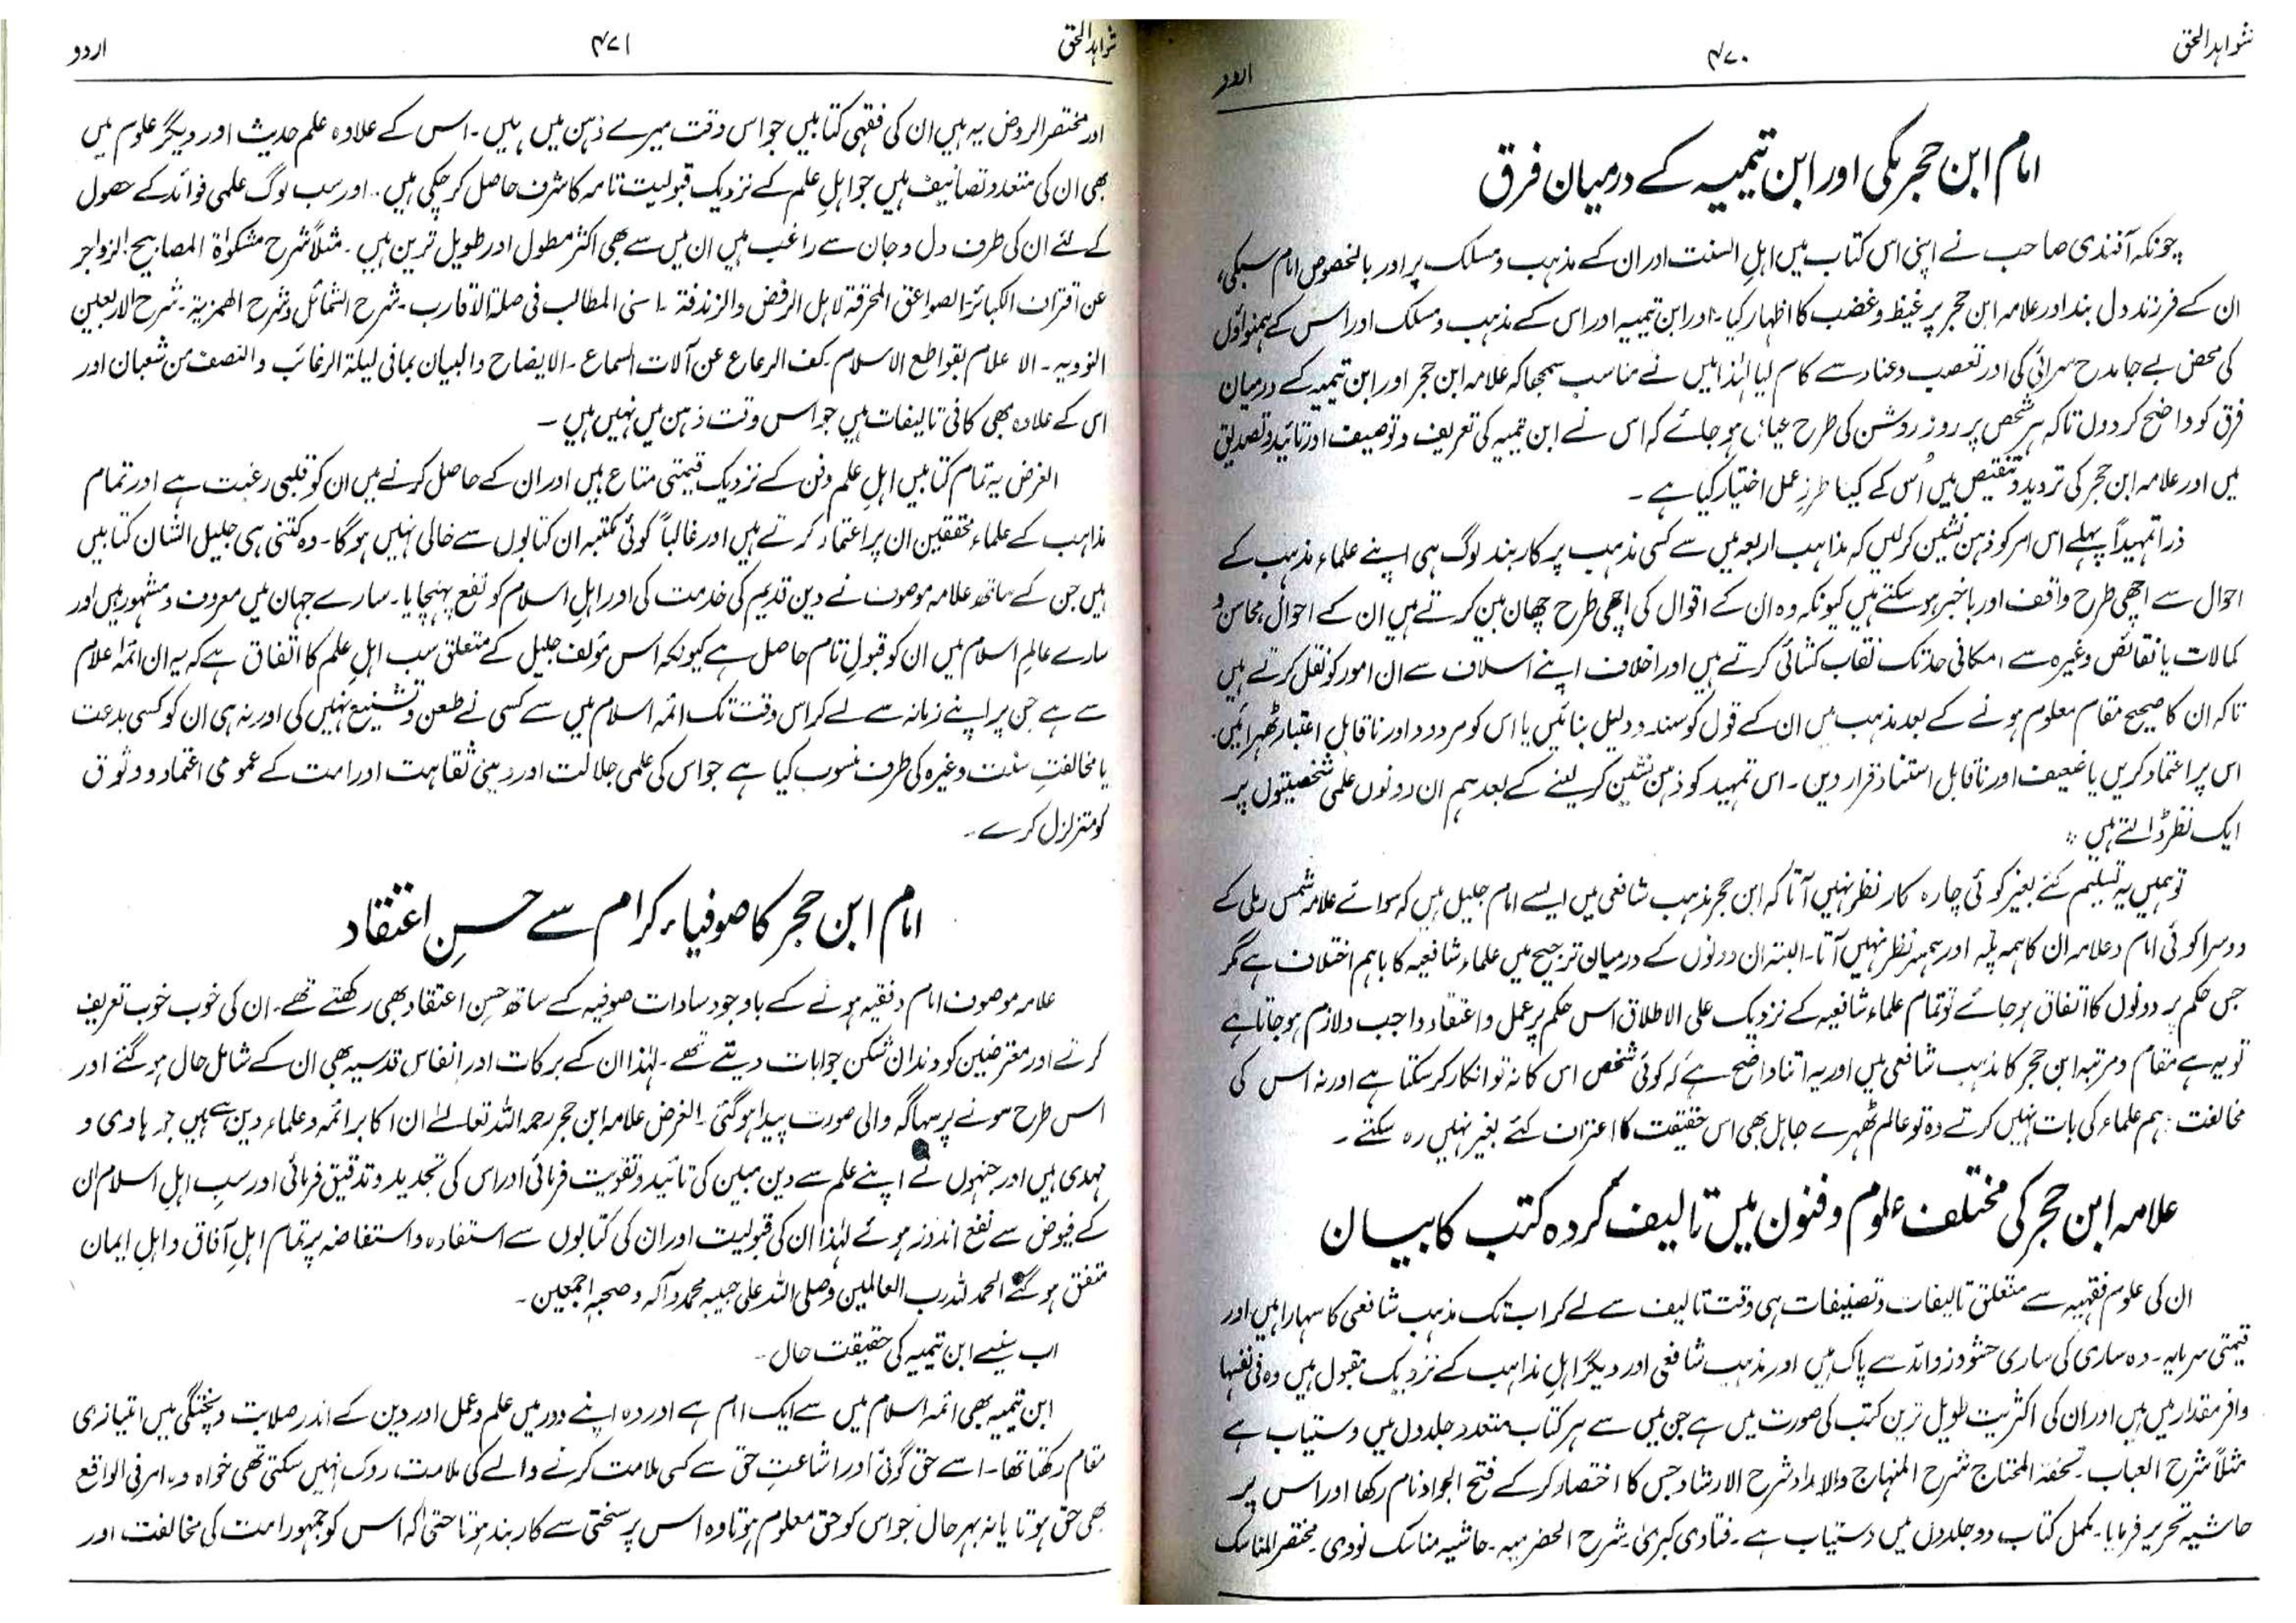 شواہد الحق
۴۷۰
اردو
امام ابن حجر مکی اور ابن تیمیہ کے درمیان فرق
چونکہ آفندی صاحب نے اپنی اس کتاب میں اہلِ السنت اور ان کے مذہب و مسلک پر اور بالخصوص امام سبکی،
ان کے فرزند دل بند اور علامہ ابن حجر پر غیظ و غضب کا اظہار کیا۔ اور ابن تیمیہ اور اس کے مذہب و مسلک اور اس کے ہمنواؤں
کی محض بے جا مدح سرائی کی اور تعصب و عناد سے کام لیا لہٰذا میں نے مناسب سمجھا کہ علامہ ابن حجر اور ابن تیمیہ کے درمیان
فرق کو واضح کر دوں تاکہ ہر شخص پر روز روشن کی طرح عیاں ہو جائے کہ اس نے ابن تیمیہ کی تعریف و توصیف اور تائید و تصدیق
میں اور علامہ ابن حجر کی تردید و تنقیص میں اُس کے کیسا طرزِ عمل اختیار کیا ہے۔
ذرا تمہیداً پہلے اس امر کو ذہن نشین کر لیں کہ مذاہب اربعہ میں سے کسی مذہب پر کاربند لوگ ہی اپنے علماء مذہب کے
احوال سے اچھی طرح واقف اور باخبر ہو سکتے ہیں کیونکہ وہ ان کے اقوال کی اچھی طرح چھان بین کرتے ہیں ان کے احوال، محاسن و
کمالات یا نقائص وغیرہ سے امکانی حد تک نقاب کشائی کرتے ہیں اور اخلاف اپنے اسلاف سے ان امور کو نقل کرتے ہیں
تاکہ ان کا صحیح مقام معلوم ہونے کے بعد مذہب میں ان کے قول کو سند و دلیل بنائیں یا اس کو مردود اور ناقابل اعتبار ٹھہرائیں۔
اس پر اعتماد کریں یا ضعیف اور ناقابل استناد قرار دیں۔ اس تمہید کو ذہن نشین کر لینے کے بعد ہم ان دونوں علمی شخصیتوں پر
ایک نظر ڈالتے ہیں :
تو ہمیں یہ تسلیم کئے بغیر کوئی چارہ کار نظر نہیں آتا کہ ابن حجر مذہب شافعی میں ایسے امام جلیل ہیں کہ سوائے علامہ شمس رملی کے
دوسرا کوئی امام و علامہ ان کا ہم پلہ اور ہمسر نظر نہیں آتا۔ البتہ ان دونوں کے درمیان ترجیح میں علماء شافعیہ کا باہم اختلاف ہے مگر
جس حکم پر دونوں کا اتفاق ہو جائے تو تمام علماء شافعیہ کے نزدیک علی الاطلاق اس حکم پر عمل و اعتقاد واجب و لازم ہو جاتا ہے
تو یہ ہے مقام و مرتبہ ابن حجر کا مذہب شافعی میں اور یہ اتنا واضح ہے کہ کوئی شخص اس کا نہ تو انکار کر سکتا ہے اور نہ اس کی
مخالفت : ہم علماء کی بات نہیں کرتے وہ تو عالم ٹھہرے جاہل بھی اس حقیقت کا اعتراف کئے بغیر نہیں رہ سکتے۔
علامہ ابن حجر کی مختلف علوم و فنون میں تالیف کردہ کتب کا بیان
ان کی علوم فقہیہ سے متعلق تالیفات و تصنیفات ہی وقت تالیف سے لے کر اب تک مذہب شافعی کا سہارا ہیں اور
قیمتی سرمایہ۔ وہ ساری کی ساری حشو و زوائد سے پاک ہیں اور مذہب شافعی اور دیگر اہل مذاہب کے نزدیک مقبول ہیں وہ فی نفسہا
وافر مقدار میں ہیں اور ان کی اکثریت طویل ترین کتب کی صورت میں ہے جن میں سے ہر کتاب متعدد جلدوں میں دستیاب ہے
مثلاً شرح العباب۔ تحفۃ المحتاج شرح المنہاج والامداد شرح الارشاد جس کا اختصار کر کے فتح الجواد نام رکھا اور اس پر
حاشیہ تحریر فرمایا۔ مکمل کتاب دو جلدوں میں دستیاب ہے۔ فتاویٰ کبریٰ۔ شرح الحضرمیہ۔ حاشیہ مناسک نووی۔ مختصر المناسک
شواہد الحق
۴۷۱
اردو
اور مختصر الروض یہ ہیں ان کی فقہی کتابیں جو اس وقت میرے ذہن میں ہیں۔ اس کے علاوہ علم حدیث اور دیگر علوم میں
بھی ان کی متعدد تصانیف ہیں جو اہلِ علم کے نزدیک قبولیت تامہ کا شرف حاصل کر چکی ہیں۔ اور سب لوگ علمی فوائد کے حصول
کے لئے ان کی طرف دل و جان سے راغب ہیں ان میں سے بھی اکثر مطول اور طویل ترین ہیں۔ مثلاً شرح مشکوٰۃ المصابیح الزواجر
عن اقتراف الکبائر۔ الصواعق المحرقۃ لاہل الرفض والزندقۃ۔ اسنی المطالب فی صلۃ الاقارب۔ شرح الشمائل و شرح الھمزیۃ۔ شرح الاربعین
النوویہ۔ الاعلام بقواطع الاسلام۔ کف الرعاع عن آلات السماع۔ الایضاح والبیان بمافی لیلۃ الرغائب والنصف من شعبان اور
اس کے علاوہ بھی کافی تالیفات ہیں جو اس وقت ذہن میں نہیں ہیں۔
الغرض یہ تمام کتابیں اہلِ علم و فن کے نزدیک قیمتی متاع ہیں اور ان کے حاصل کرنے میں ان کو قلبی رغبت ہے اور تمام
مذاہب کے علماء محققین ان پر اعتماد کرتے ہیں اور غالباً کوئی مکتبہ ان کتابوں سے خالی نہیں ہوگا۔ وہ کتنی ہی جلیل الشان کتابیں
ہیں جن کے ساتھ علامہ موصوف نے دین قدیم کی خدمت کی اور اہلِ اسلام کو نفع پہنچایا۔ سارے جہان میں معروف و مشہور ہیں اور
سارے عالمِ اسلام میں ان کو قبولِ تام حاصل ہے کیونکہ اس مؤلف جلیل کے متعلق سب اہلِ علم کا اتفاق ہے کہ یہ ان ائمہ اعلام
سے ہے جن پر اپنے زمانہ سے لے کر اس وقت تک ائمہ اسلام میں سے کسی نے طعن و تشنیع نہیں کی اور نہ ہی ان کو کسی بدعت
یا مخالفتِ سنت وغیرہ کی طرف منسوب کیا ہے جو اس کی علمی جلالت اور دینی ثقاہت اور امت کے عمومی اعتماد و وثوق
کو متزلزل کرے۔
امام ابن حجر کا صوفیاء کرام سے حسنِ اعتقاد
علامہ موصوف امام و فقیہ ہونے کے باوجود سادات صوفیہ کے ساتھ حسنِ اعتقاد بھی رکھتے تھے۔ ان کی خوب خوب تعریف
کرتے اور معترضین کو دندان شکن جوابات دیتے تھے۔ لہٰذا ان کے برکات اور انفاس قدسیہ بھی ان کے شامل حال ہو گئے اور
اس طرح سونے پر سہاگہ والی صورت پیدا ہو گئی۔ الغرض علامہ ابن حجر رحمہ اللہ تعالےٰ ان اکابر ائمہ و علماء دین سے ہیں جو ہادی و
مہدی ہیں اور جنہوں نے اپنے علم سے دین مبین کی تائید و تقویت فرمائی اور اس کی تجدید و تدقیق فرمائی اور سب اہلِ اسلام ان
کے فیوض سے نفع اندوز ہوئے لہٰذا ان کی قبولیت اور ان کی کتابوں سے استفادہ و استفاضہ پر تمام اہلِ آفاق و اہلِ ایمان
متفق ہو گئے الحمد للہ رب العالمین وصلی اللہ علی حبیبہ محمد و آلہ و صحبہ اجمعین۔
اب سنیے ابن تیمیہ کی حقیقت حال۔
ابن تیمیہ بھی ائمہ اسلام میں سے ایک امام ہے اور وہ اپنے دور میں علم و عمل اور دین کے اندر صلابت و پختگی میں امتیازی
مقام رکھتا تھا۔ اسے حق گوئی اور اشاعتِ حق سے کسی ملامت کرنے والے کی ملامت روک نہیں سکتی تھی خواہ وہ امر فی الواقع
بھی حق ہوتا یا نہ بہر حال جو اس کو حق معلوم ہوتا وہ اس پر سختی سے کاربند ہوتا حتیٰ کہ اس کو جمہور امت کی مخالفت اور